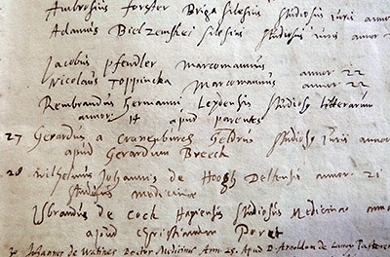 Ambrosius Forster Briga Silesius Studiosus Iuris annor
Adamus Silesius Studiosus Iuris annor
Jacobus Pfendler Marcomannus annor 22
Nicolaus Toppincka Marcomannus annor 22
Rembrandus Hermanni Leydensis Studios Litterarum
annor 14 apud parentes
27 Gerardus a Cranenburch Geldrus Studios Iuris annor
apud Gerardum Breeck
28 Wilhelmus Johannis de Hoogh Delfensis annor. 21
Studiosus medicinae
Isbrandus de Cock Hagiensis Studiosus Medicinae annor
apud Christianum Poret
Johannes de Doctor Medicinae Ann. 25. apud D.